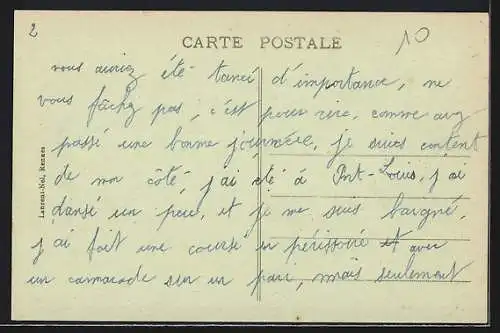 2
10
CARTE POSTALE
vous auriez été tancé d'importance, ne
vous fâchez pas, c'est pour rire, comme avez
passé une bonne journée, je suis content
de mon côté, j'ai été à Port-Louis, j'ai
dansé un peu, et je me suis baigné,
j'ai fait une course en périssoire et avec
un camarade sur un parc, mais seulement
Laurent-Nel, Rennes